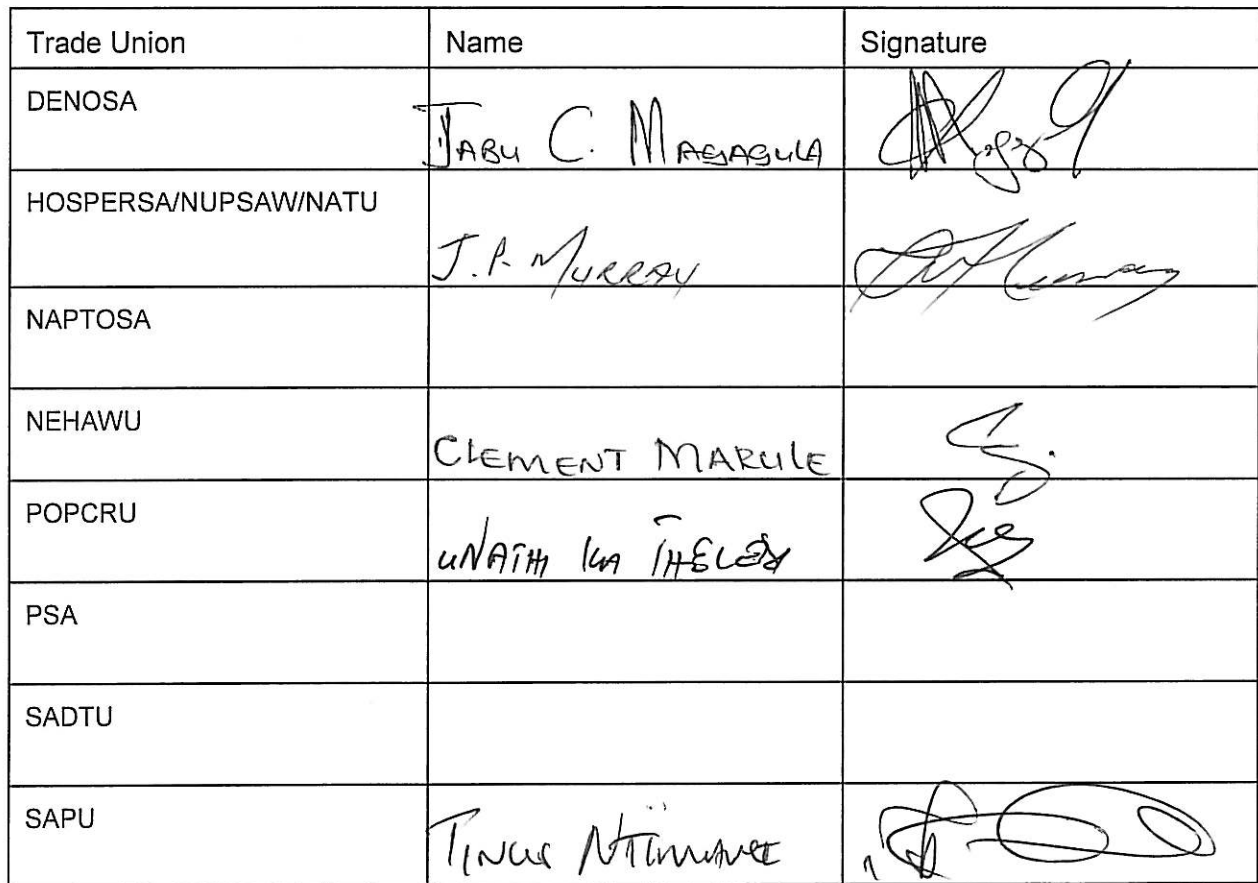 Trade Union Name Signature
DENOSA JABU C. MAGAGULA
HOSPERSA/NUPSAW/NATU J.P. MURRAY
NAPTOSA
NEHAWU CLEMENT MARULE
POPCRU UNATHI
PSA
SADTU
SAPU